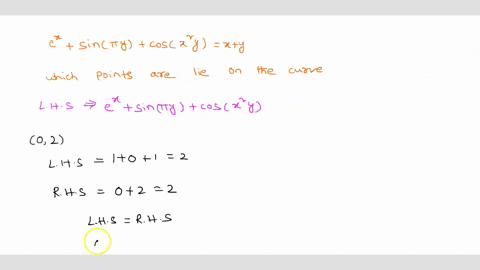 e^x + sin(πy) + cos(x^2y) = x+y
which points are lie on the curve
L.H.S ⇒ e^x + sin(πy) + cos(x^2y)
(0,2)
L.H.S = 1+0+1 = 2
R.H.S = 0+2 = 2
L.H.S = R.H.S